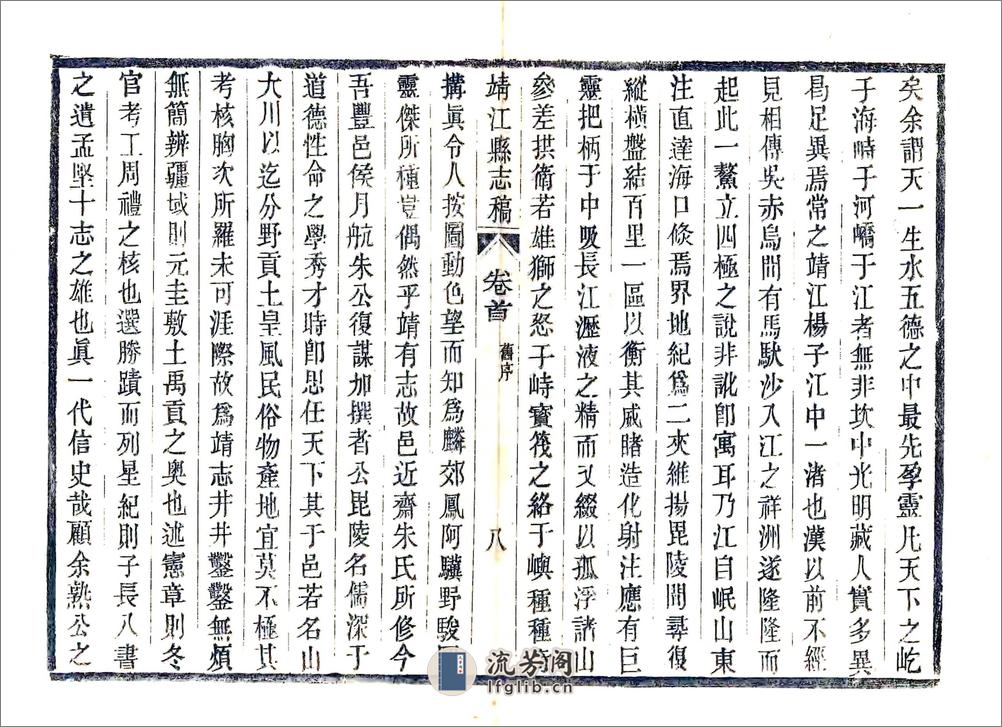 矣余謂天一生水五德之中最先孕靈凡天下之屹
于海峙于河嶠于江者無非坎中光明藏人實多異
曷足異焉常之靖江楊子江中一渚也漢以前不經
見相傳吳赤烏間有馬馱沙入江之祥洲遂隆隆而
起此一鰲立四極之說非訛卽寓耳乃江自岷山東
注直達海口倏焉界地紀爲二夾維揚毘陵間尋復
縱橫盤結百里一區以衡其威睹造化射注應有巨
靈把柄于中吸長江瀝液之精而又綴以孤浮諸山
參差拱衛若雄獅之怒于峙寳筏之絡于嶼種種
靖江縣志稿 卷首 舊序 八
搆眞令人按圖動色望而知爲麟郊鳳阿驥野駿
靈傑所種豈偶然乎靖有志故邑近齋朱氏所修今
吾豐邑侯月航朱公復謀加撰者公毘陵名儒深于
道德性命之學秀才時卽思任天下其于邑若名山
大川以迄分野貢土皇風民俗物產地宜莫不極其
考核胸次所羅未可涯際故爲靖志井井鑿鑿無煩
無簡辨疆域則元圭敷土禹貢之奧也述憲章則冬
官考工周禮之核也選勝蹟而列星紀則子長八書
之遺孟堅十志之雄也眞一代信史哉顧余熟公之
流芳阁
lfglib.cn